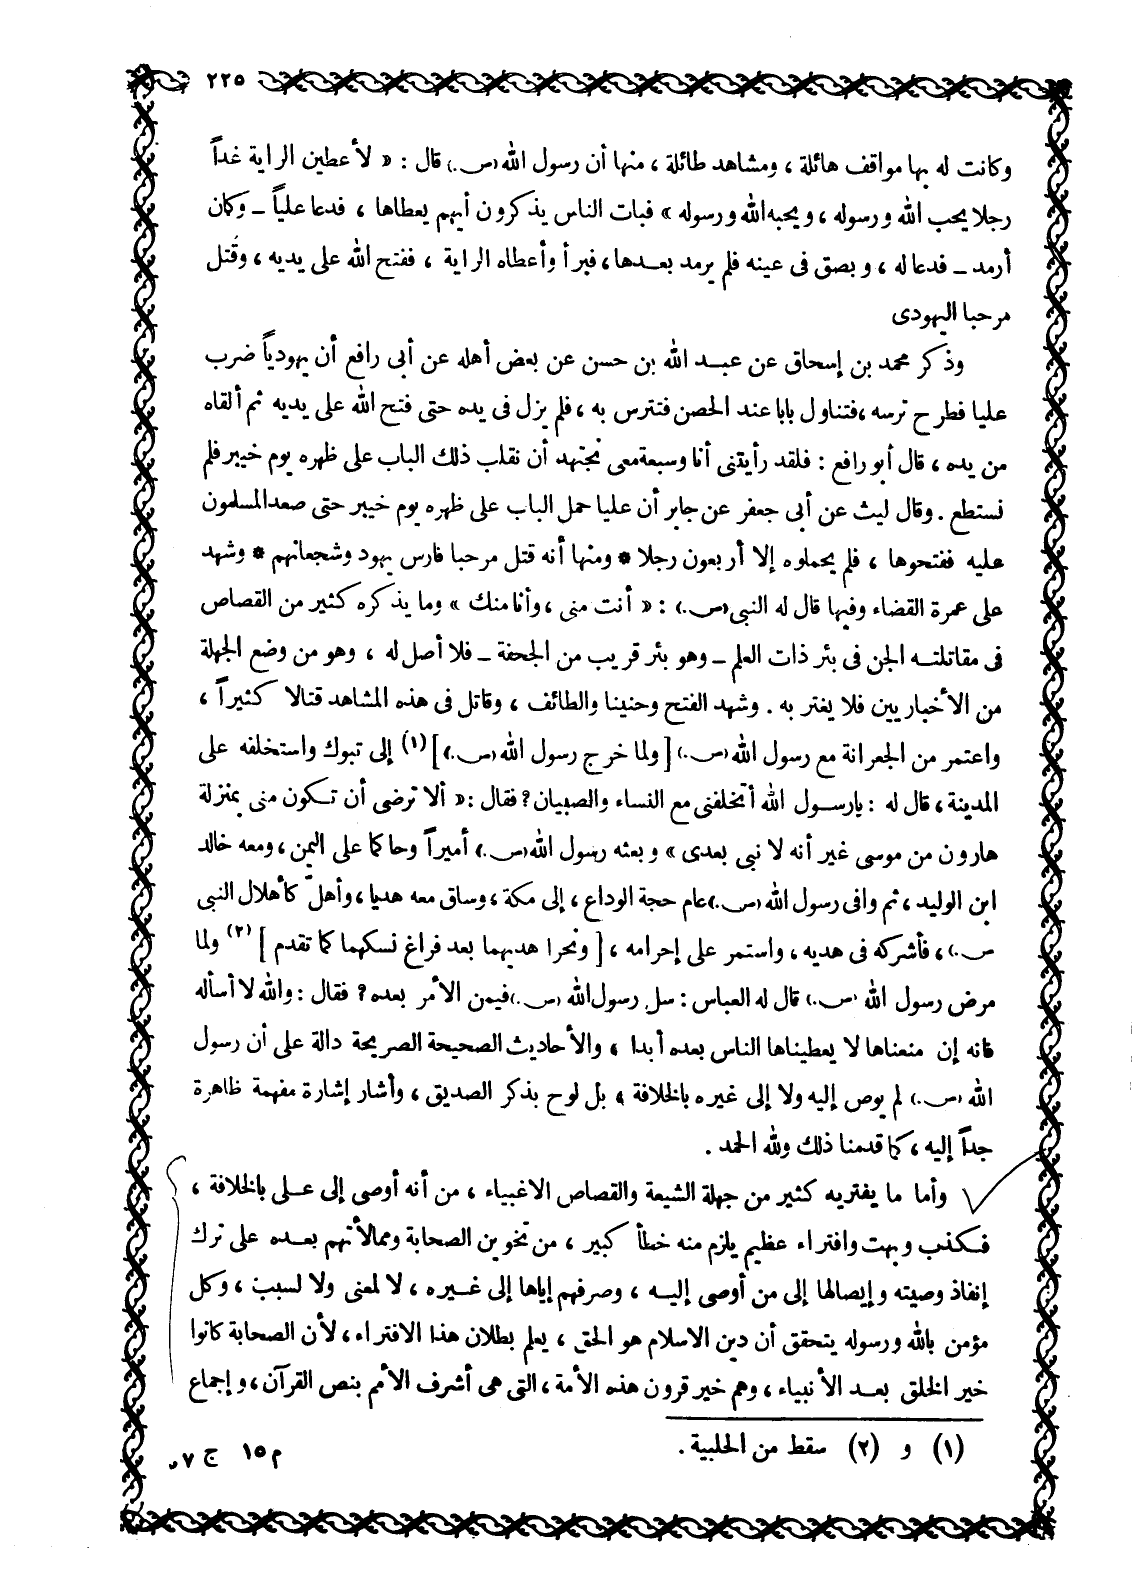 ٢٢٥
وكانت له بها مواقف هائلة ، ومشاهد طائلة ، منها أن رسول الله (ص.) قال : « لأعطين الراية غداً
رجلا يحب الله ورسوله ، ويحبه الله ورسوله » فبات الناس يذكرون أيهم يعطاها ، فدعا علياً ــ وكان
أرمد ــ فدعا له ، وبصق فى عينه فلم يرمد بعدها ، فبرأ وأعطاه الراية ، ففتح الله على يديه ، وقُتل
مرحبا اليهودى
وذكر محمد بن إسحاق عن عبد الله بن حسن عن بعض أهله عن أبى رافع أن يهودياً ضرب
عليا فطرح ترسه ، فتناول بابا عند الحصن فتترس به ، فلم يزل فى يده حتى فتح الله على يديه ثم ألقاه
من يده ، قال أبو رافع : فلقد رأيتنى أنا وسبعة معى نجتهد أن نقلب ذلك الباب على ظهره يوم خيبر فلم
نستطع . وقال ليث عن أبى جعفر عن جابر أن عليا حمل الباب على ظهره يوم خيبر حتى صعد المسلمون
عليه ففتحوها ، فلم يحملوه إلا أربعون رجلا * ومنها أنه قتل مرحبا فارس يهود وشجعانهم * وشهد
على عمرة القضاء وفيها قال له النبى (ص.) : « أنت منى ، وأنا منك » وما يذكره كثير من القصاص
فى مقاتلته الجن فى بئر ذات العلم ــ وهو بئر قريب من الجحفة ــ فلا أصل له ، وهو من وضع الجهلة
من الأخباريين فلا يغتر به . وشهد الفتح وحنينا والطائف ، وقاتل فى هذه المشاهد قتالا كثيراً ،
واعتمر من الجعرانة مع رسول الله (ص.) [ ولما خرج رسول الله (ص.) ] (١) إلى تبوك واستخلفه على
المدينة ، قال له : يارسول الله أتخلفنى مع النساء والصبيان ؟ فقال : « ألا ترضى أن تكون منى بمنزلة
هارون من موسى غير أنه لا نبى بعدى » وبعثه رسول الله (ص.) أميراً وحاكما على اليمن ، ومعه خالد
ابن الوليد ، ثم وافى رسول الله (ص.) عام حجة الوداع ، إلى مكة ، وساق معه هديا ، وأهلّ كأهلال النبى
ص.) ، فأشركه فى هديه ، واستمر على إحرامه ، [ ونحرا هديهما بعد فراغ نسكهما كما تقدم ] (٢) ولما
مرض رسول الله (ص.) قال له العباس : سل رسول الله (ص.) فيمن الأمر بعده ؟ فقال : والله لا أسأله
فانه إن منعناها لا يعطيناها الناس بعده أبدا ، والأحاديث الصحيحة الصريحة دالة على أن رسول
الله (ص.) لم يوص إليه ولا إلى غيره بالخلافة ، بل لوح بذكر الصديق ، وأشار إشارة مفهمة ظاهرة
جداً إليه ، كما قدمنا ذلك ولله الحمد .
وأما ما يفتريه كثير من جهلة الشيعة والقصاص الاغبياء ، من أنه أوصى إلى على بالخلافة ،
فكذب وبهت وافتراء عظيم يلزم منه خطأ كبير ، من تخوين الصحابة وممالأتهم بعده على ترك
إنفاذ وصيته وإيصالها إلى من أوصى إليه ، وصرفهم إياها إلى غيره ، لا لمعنى ولا لسبب ، وكل
مؤمن بالله ورسوله يتحقق أن دين الاسلام هو الحق ، يعلم بطلان هذا الافتراء ، لأن الصحابة كانوا
خير الخلق بعد الأنبياء ، وهم خير قرون هذه الأمة ، التى هى أشرف الأمم بنص القرآن ، وإجماع
(١) و (٢) سقط من الحلبية .
م ١٥ ج ٧